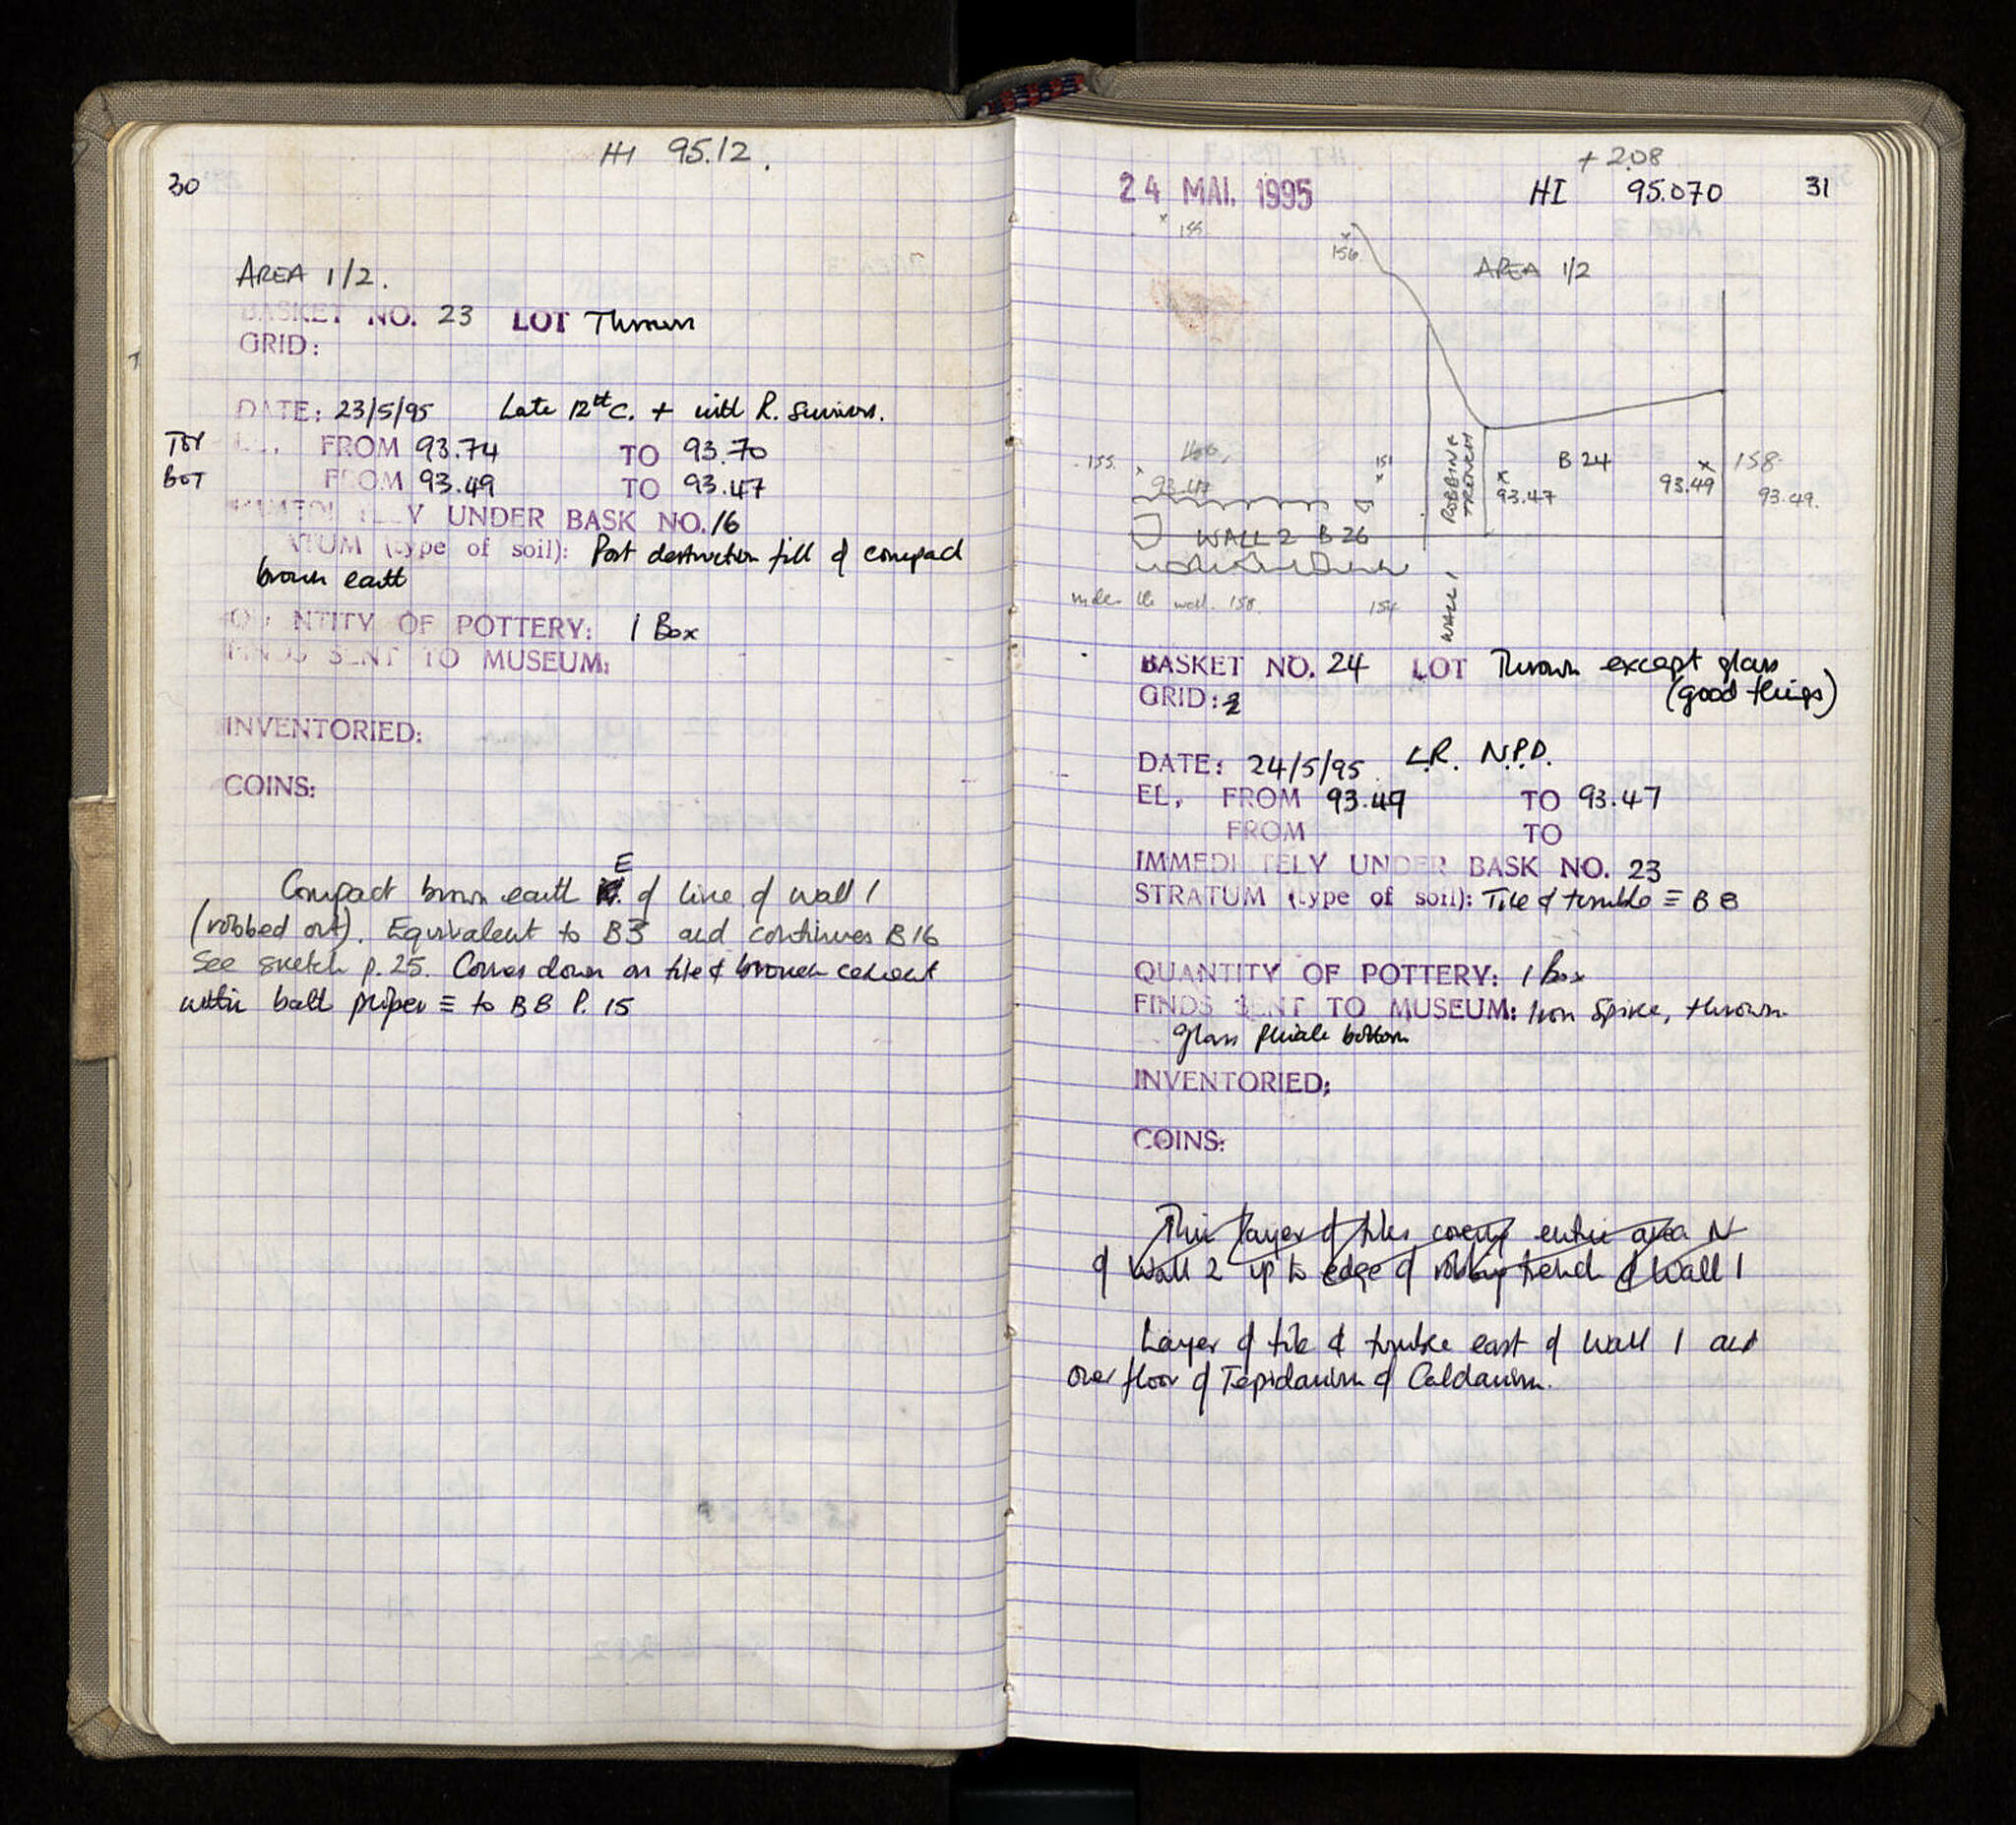 HI 95.12.
30
AREA 1/2.
BASKET NO. 23 LOT Thrown
GRID:
DATE: 23/5/95 Late 12th C. + with R. Survivors.
TOP EL, FROM 93.74 TO 93.70
BOT FROM 93.49 TO 93.47
IMMEDIATELY UNDER BASK NO. 16
STRATUM (type of soil): Post destruction fill of compact
brown earth
QUANTITY OF POTTERY: 1 Box
FINDS SENT TO MUSEUM:
INVENTORIED:
COINS:
E
Compact brown earth of line of wall 1
(robbed out). Equivalent to B3 and continues B16
See sketch p. 25. Comes down on tile & broken cement
within bath proper ≡ to B8 P. 15
+ 2.08
24 MAI. 1995 HI 95.070 31
× 155
× 156
AREA 1/2
155. × 93.47
151 ×
ROBBING TRENCH
× 93.47
B 24
× 93.49
158
93.49.
WALL 2 B 26
under the wall. 158. 154
WALL 1
BASKET NO. 24 LOT Thrown except glass
GRID: 2 (good things)
DATE: 24/5/95. L.R. N.P.D.
EL, FROM 93.49 TO 93.47
FROM TO
IMMEDIATELY UNDER BASK NO. 23
STRATUM (type of soil): Tile & tumble ≡ B 8
QUANTITY OF POTTERY: 1 Box
FINDS SENT TO MUSEUM: Iron Spike, thrown
Glass phiale bottom
INVENTORIED:
COINS:
This layer of tiles covers entire area N
of Wall 2 up to edge of robbing trench of Wall 1
Layer of tile & tumble east of Wall 1 and
over floor of Tepidarium of Caldarium.